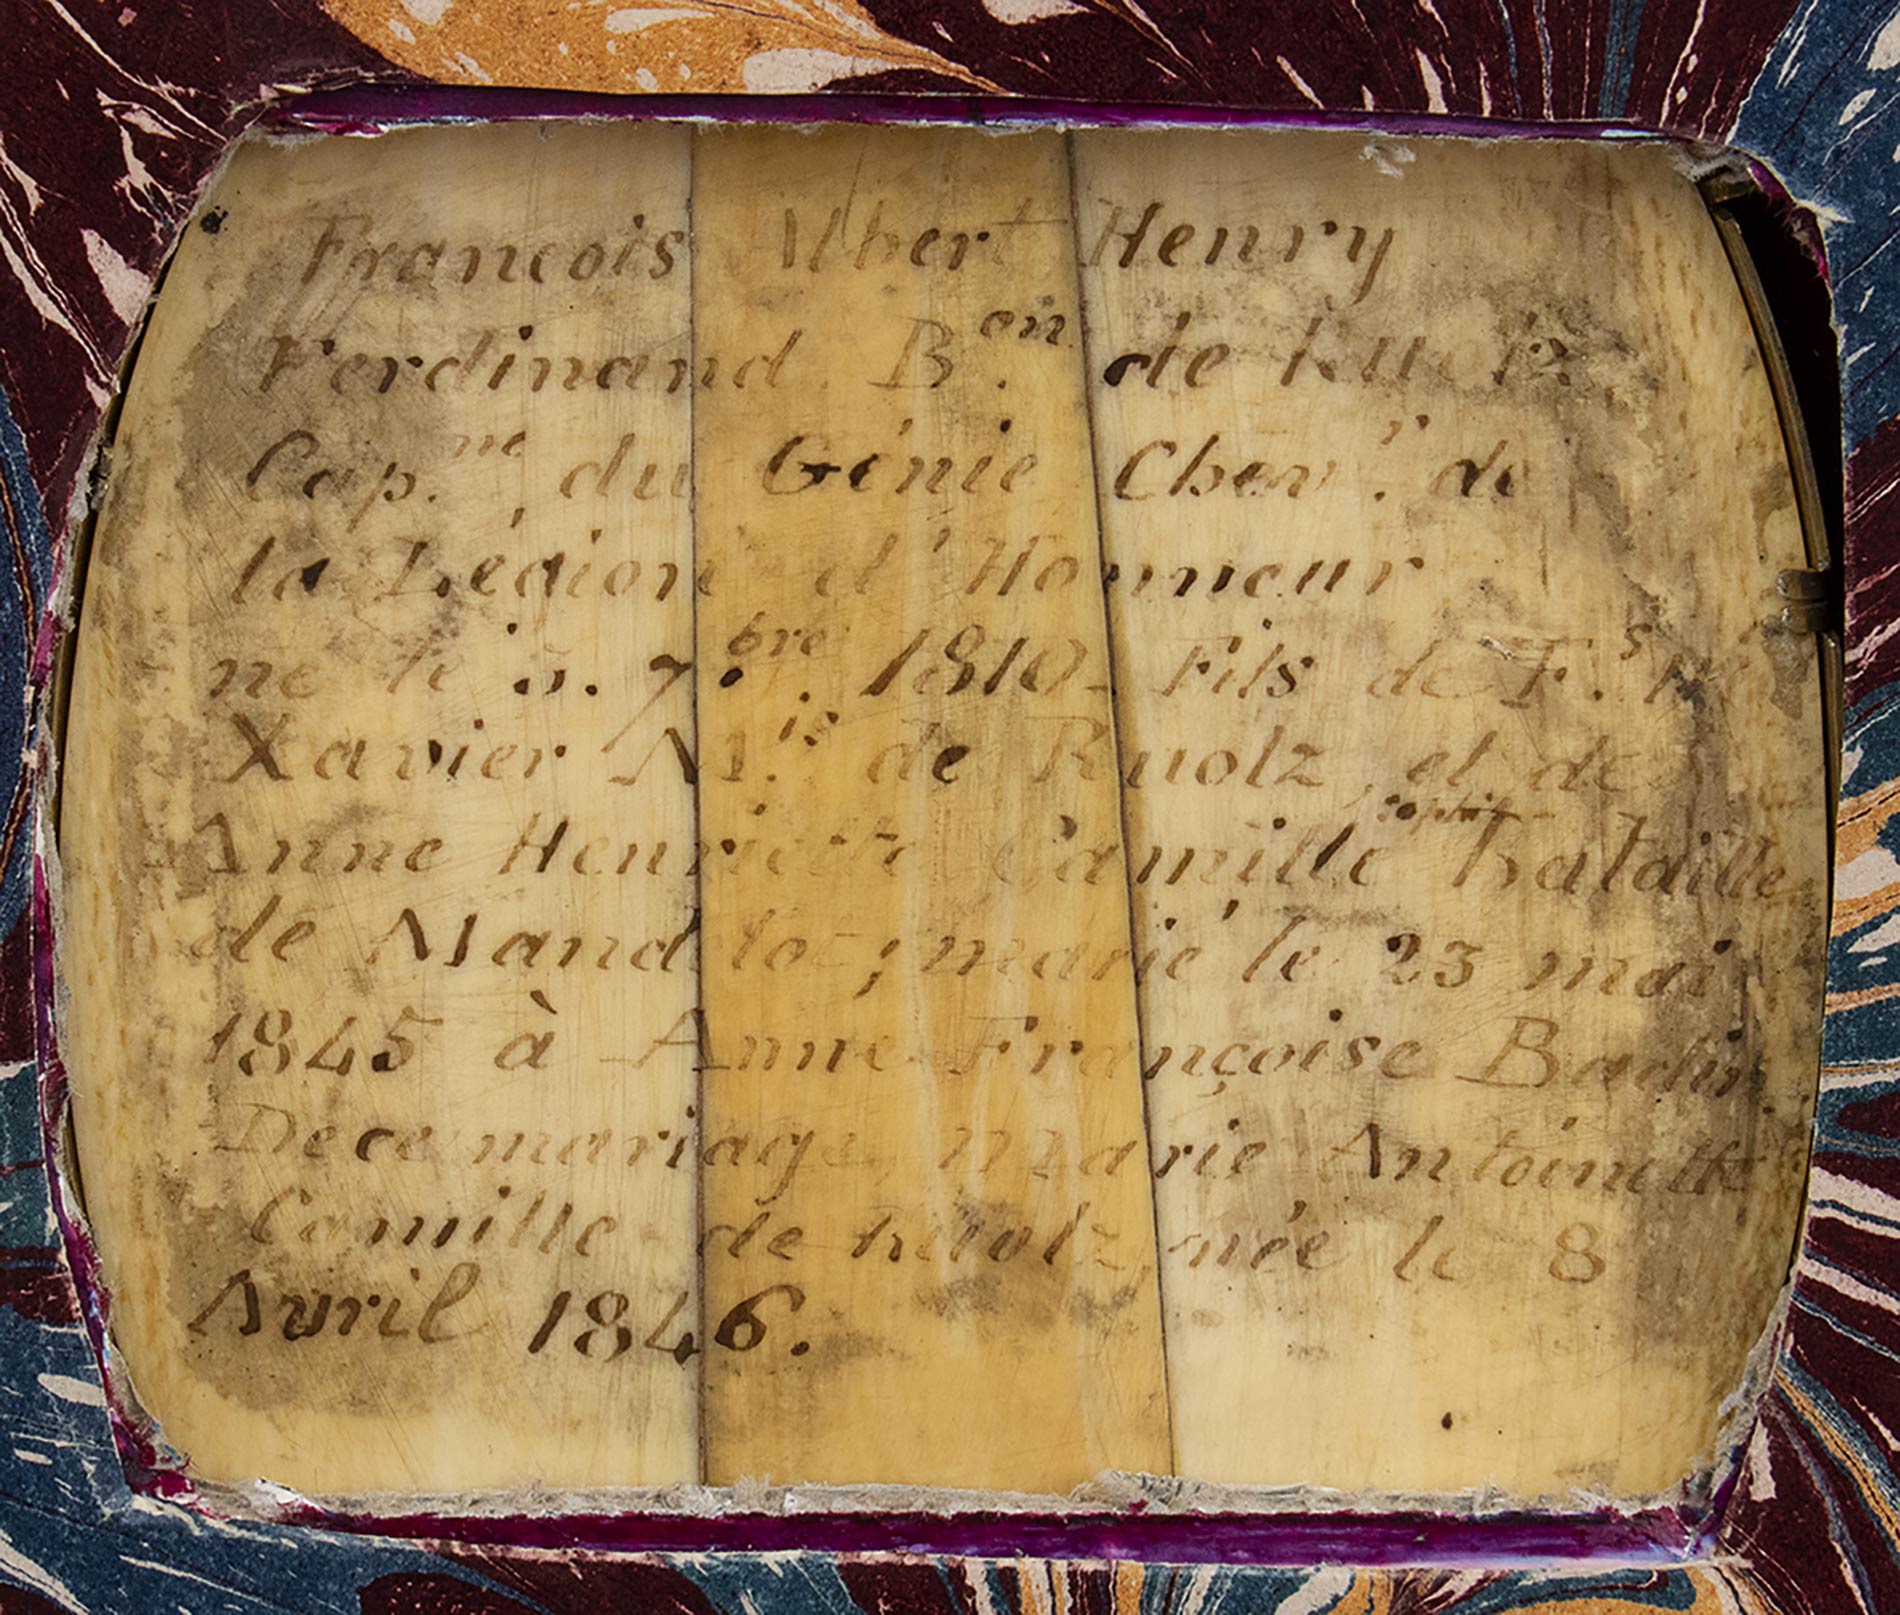 Francois Albert Henry
Ferdinand. B.on de Ruolz
Cap.ne du Génie Chev.r de
la Légion d'Honneur
né le 5. 7.bre 1810_ Fils de F.s
Xavier M.is de Ruolz, et de
Anne Henriette Camille Bataille
de Mandelot; marié le 23 mai
1845 à Anne Françoise Badin
De ce mariage, Marie Antoinette
Camille de Ruolz, née le 8
Avril 1846.